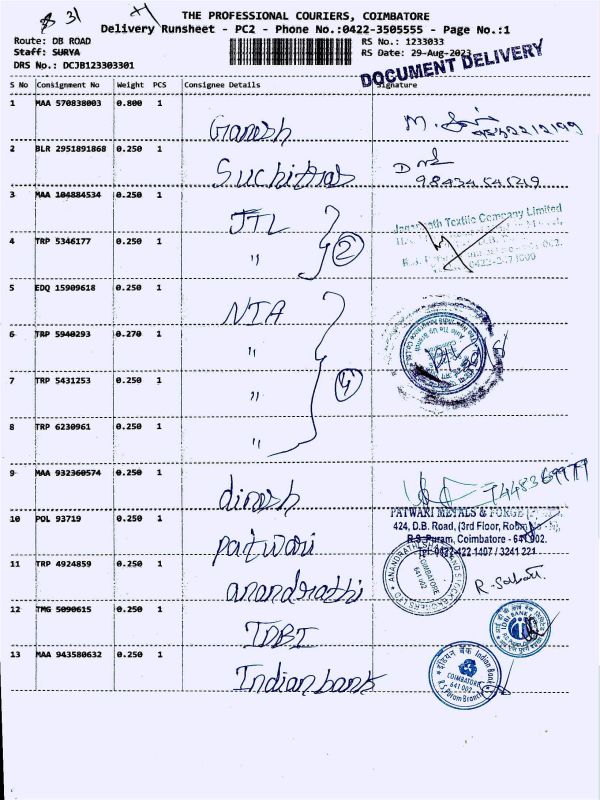 31
THE PROFESSIONAL COURIERS, COIMBATORE
Delivery Runsheet - PC2 - Phone No.:0422-3505555 - Page No.:1
Route: DB ROAD
Staff: SURYA
DRS No.: DCJB123303301
RS No.: 1233033
RS Date: 29-Aug-2023
DOCUMENT DELIVERY
S No Consignment No Weight PCS Consignee Details Signature
1 MAA 570838003 0.800 1 Ganesh
2 BLR 2951891868 0.250 1 Suchitra
3 MAA 104884534 0.250 1 JTL
Jagannath Textile Company Limited
4 TRP 5346177 0.250 1 " 2
5 EDQ 15909618 0.250 1 NIA
6 TRP 5940293 0.270 1 "
7 TRP 5431253 0.250 1 " 4
8 TRP 6230961 0.250 1 "
9 MAA 932360574 0.250 1 dinesh
PATWARI METALS & FORGE
424, D.B. Road, (3rd Floor, Room
R.S. Puram, Coimbatore - 641 002.
Tel: 0422-422 1407 / 3241 221
10 POL 93719 0.250 1 patwari
11 TRP 4924859 0.250 1 anandrathi
COIMBATORE
641 002
12 TMG 5090615 0.250 1 IDBI
IDBI BANK
13 MAA 943580632 0.250 1 Indian bank
इंडियन बैंक Indian Bank
COIMBATORE
641 002
R.S. Puram Branch